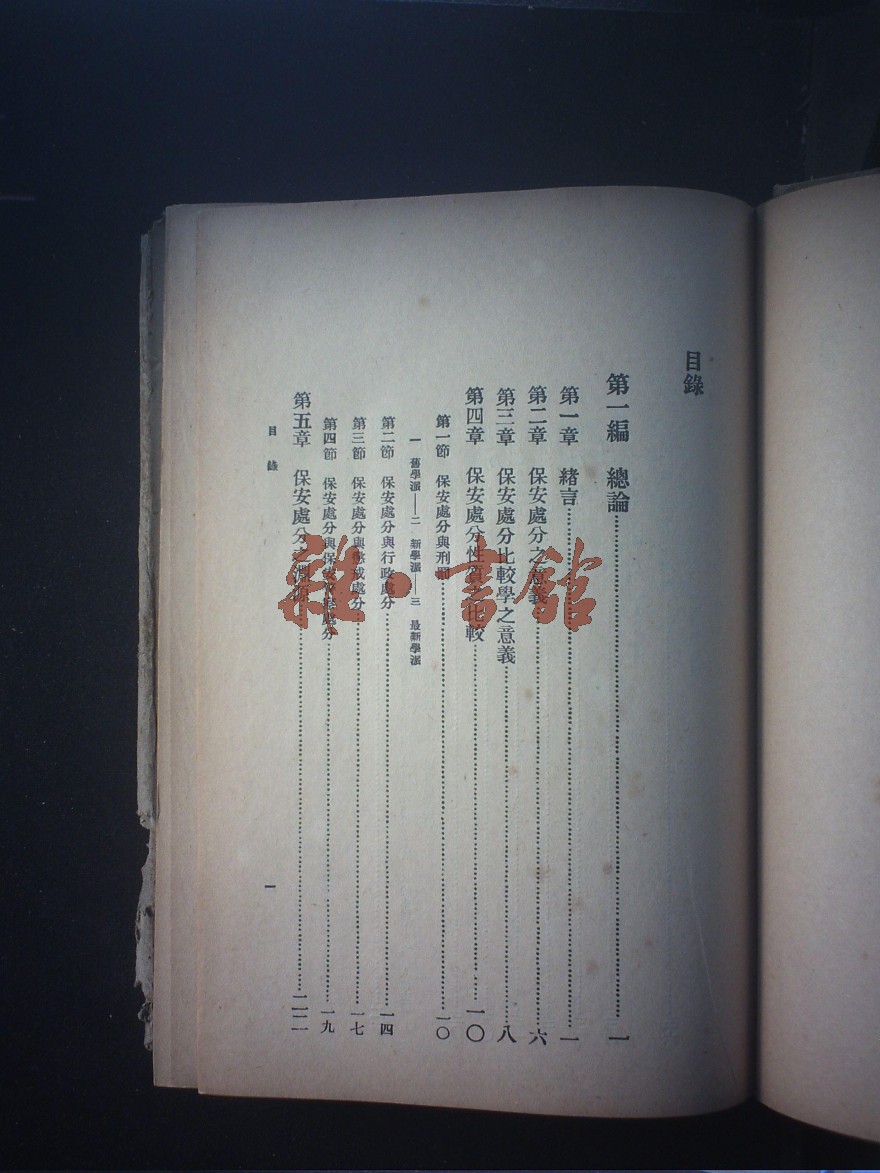 目錄
第一編 總論…………一
第一章 緒言…………一
第二章 保安處分之意義…………六
第三章 保安處分比較學之意義…………八
第四章 保安處分性質之比較…………一〇
第一節 保安處分與刑罰…………一〇
一 舊學派——二 新學派——三 最新學派
第二節 保安處分與行政處分…………一四
第三節 保安處分與懲戒處分…………一七
第四節 保安處分與保安處分…………一九
第五章 保安處分之淵源…………二二
目錄
一
雜·書館